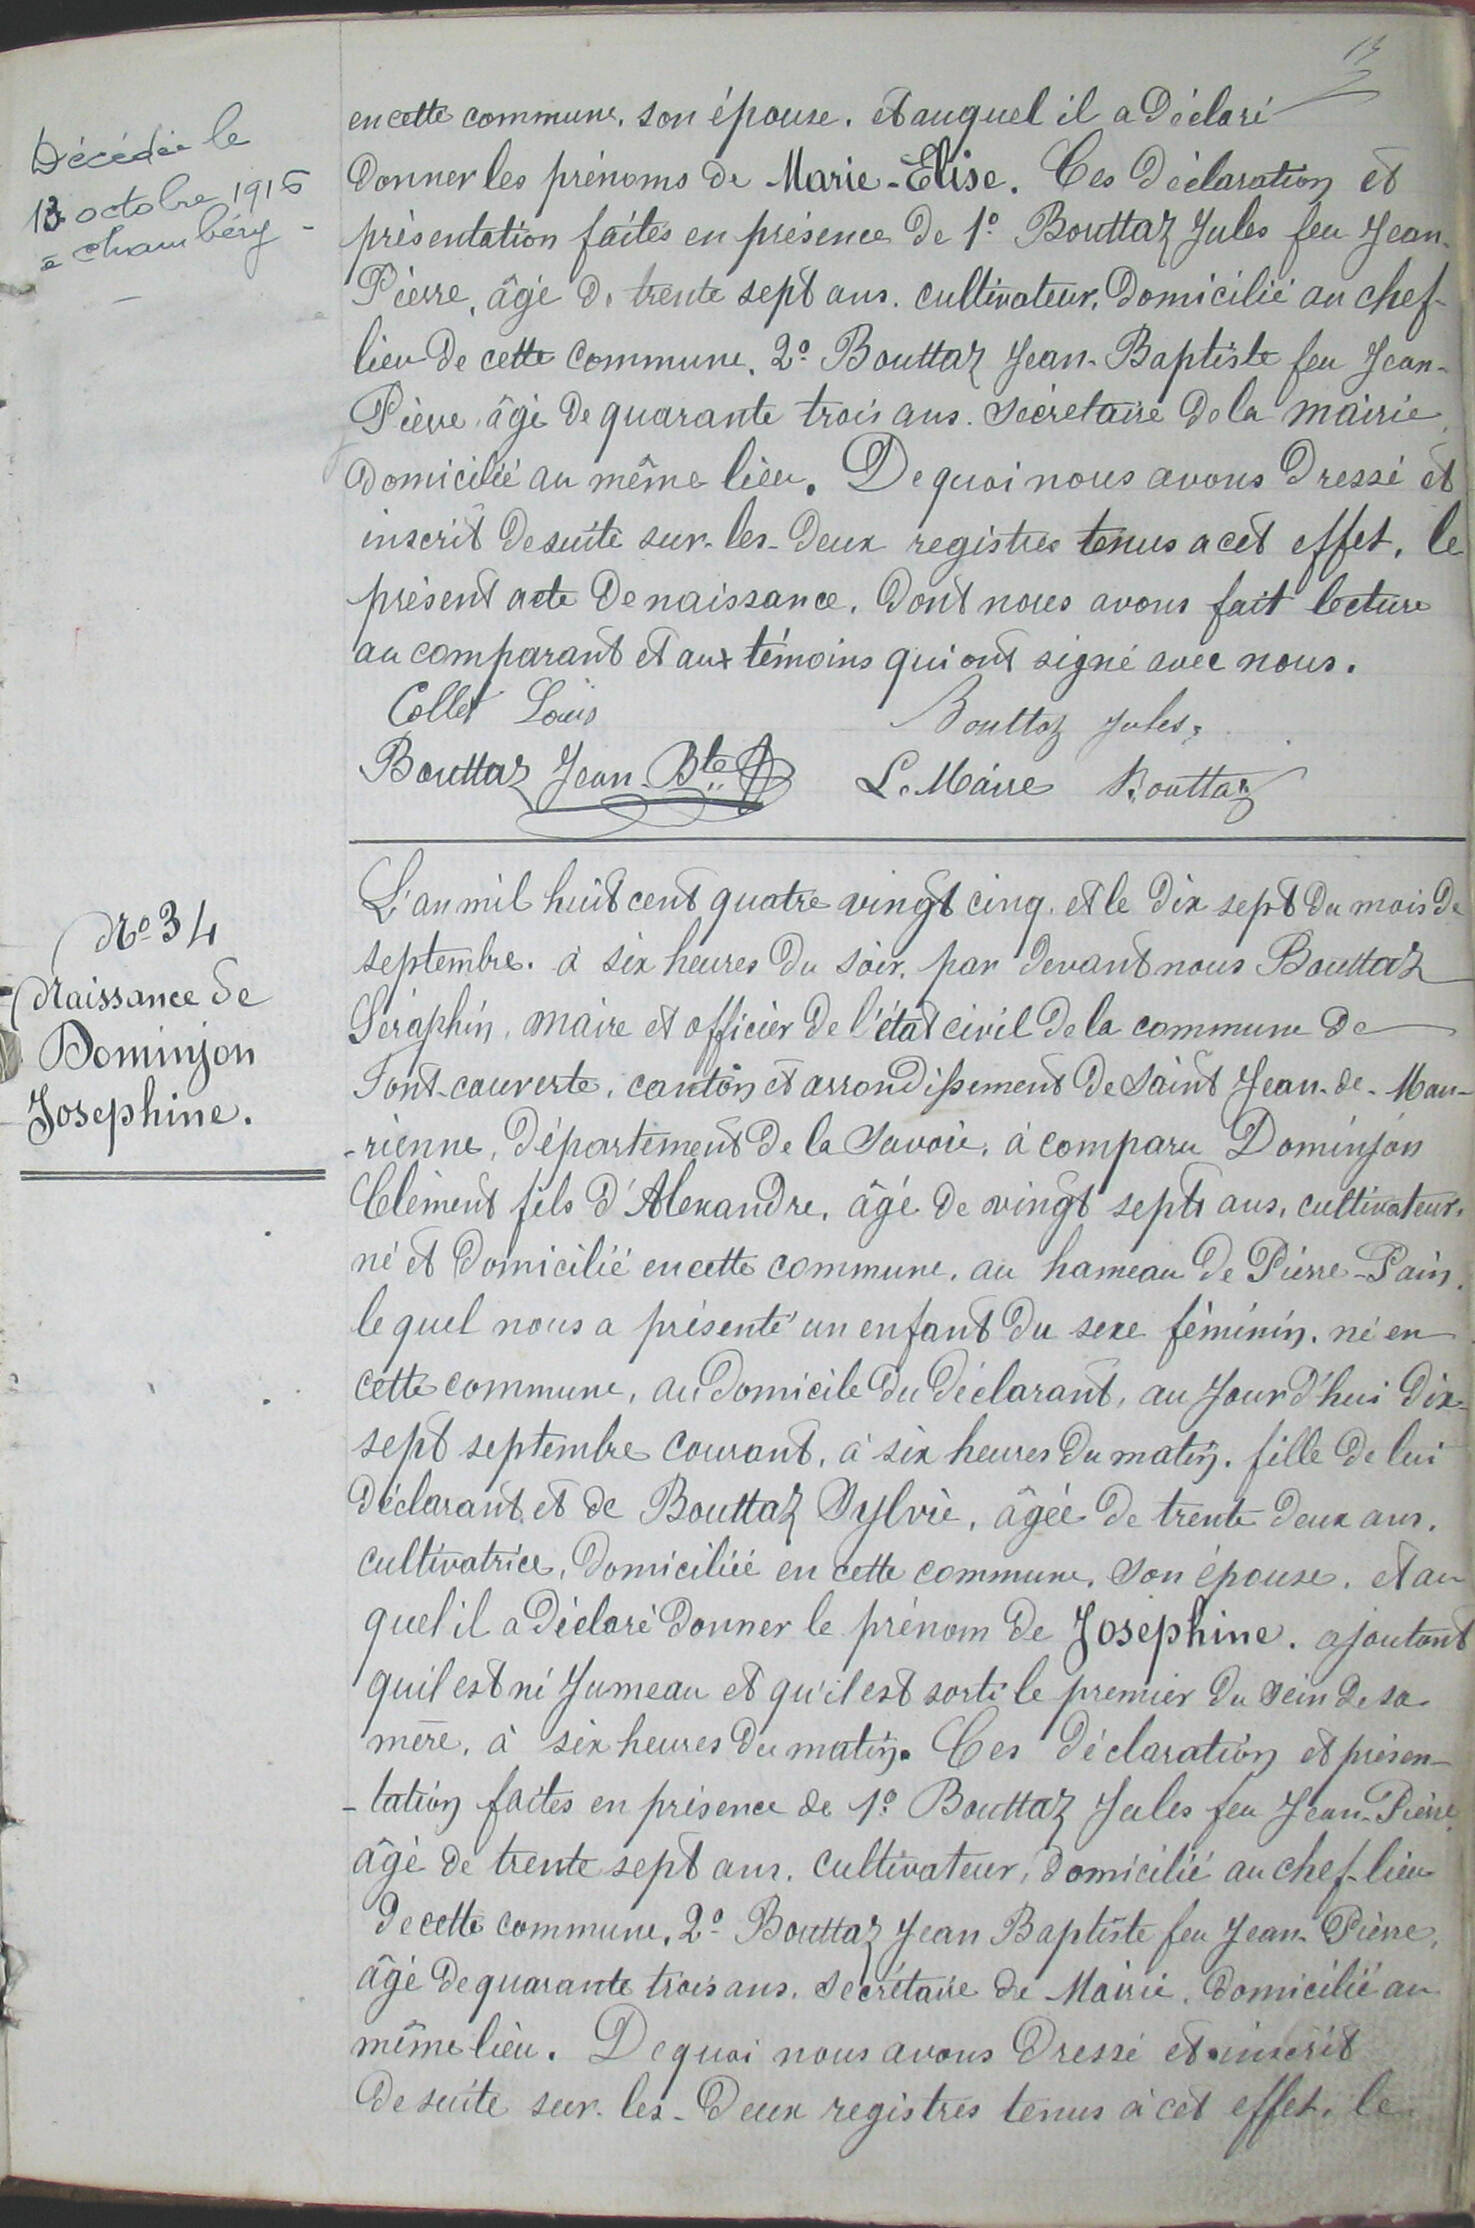 13
Décédée le
13 octobre 1915
à chambéry -
en cette commune, son épouse. et auquel il a déclaré
donner les prénoms de Marie-Elise. Ces déclaration et
présentation faites en présence de 1º Bouttaz Jules feu Jean-
Pierre, âgé de trente sept ans. cultivateur, domicilié au chef-
lieu de cette commune. 2º Bouttaz Jean-Baptiste feu Jean-
Pierre âgé de quarante trois ans. Secrétaire de la mairie
domicilié au même lieu. De quoi nous avons dressé et
inscrit de suite sur-les-deux registres tenus a cet effet, le
présent acte de naissance, dont nous avons fait lecture
au comparant et aux témoins qui ont signé avec nous.
Collet Louis Bouttaz Jules
Bouttaz Jean-Bte Le Maire Bouttaz
Nº 34
Naissance de
Dominjon
Josephine.
L'an mil huit cent quatre vingt cinq. et le dix sept du mois de
septembre. à six heures du soir, par devant nous Bouttaz
Séraphin, maire et officier de l'état civil de la commune de
Font-couverte, canton et arrondissement de Saint Jean-de-Mau-
-rienne, département de la Savoie, à comparu Dominjon
Clément fils d'Alexandre, âgé de vingt sept ans, cultivateur,
né et domicilié en cette commune, au hameau de Pierre-Pain,
lequel nous a présenté un enfant du sexe féminin, né en
cette commune, au domicile du déclarant, au jour d'hui dix-
sept septembre courant, à six heures du matin. fille de lui
déclarant et de Bouttaz Sylvie, âgée de trente deux ans,
cultivatrice, domiciliée en cette commune, son épouse, et au
quel il a déclaré donner le prénom de Josephine. ajoutant
quil est né Jumeau et qu'il est sorti le premier du sein de sa
mère, à six heures du matin. Ces déclaration et présen-
-tation faites en présence de 1º Bouttaz Jules feu Jean-Pierre
âgé de trente sept ans. cultivateur, domicilié au chef-lieu
de cette commune, 2º Bouttaz Jean Baptiste feu Jean-Pierre,
âgé de quarante trois ans. secrétaire de Mairie, domicilié au
même lieu. De quoi nous avons dressé et inscrit
de suite sur-les-deux registres tenus à cet effet, le